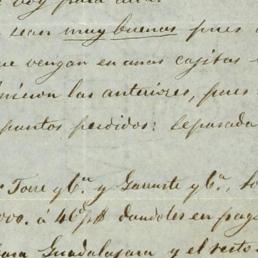 voy para allá.
sean muy buenos pues
que vengan en unas cajitas
las anteriores, pues
puntos perdidos: separada
Torre y Ca. y Garruste y Ca.,
000. á 40 p$ dandoles en pag
para Guadalajara y el resto